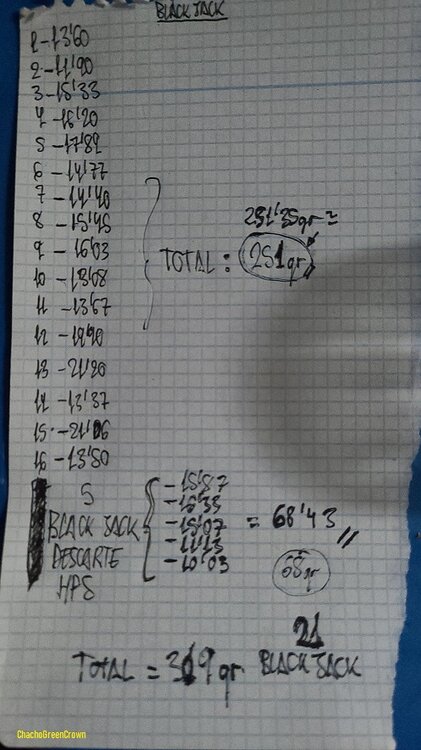 BLACK JACK
1-13'60
2-11'90
3-15'33
4-16'20
5-17'82
6-14'77
7-14'40
8-15'45
9-16'03
10-13'08
11-13'67
12-19'90
13-21'20
14-13'37
15-21'06
16-13'80
251'35gr =
TOTAL: 251gr
5
BLACK JACK
DESCARTE
HPS
-15'87
-16'33
-15'07
-11'13
-10'03
= 68'43
68gr
TOTAL = 319 gr
21
BLACK JACK
ChachoGreenCrown